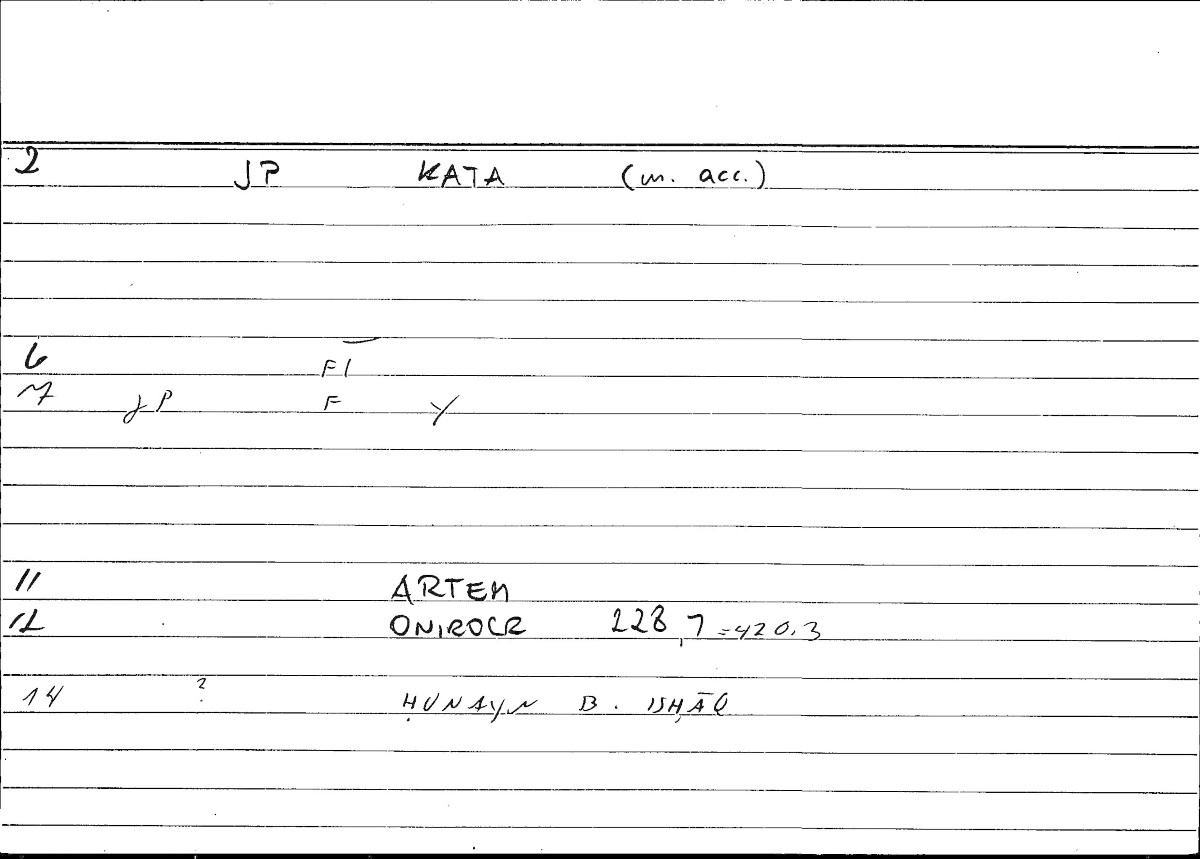 2 JP KATA (m. acc.)
6 FĪ
7 JP F Y
11 ARTEM
12 ONIROCR 228,7=420.3
14 ? ḤUNAYN B. ISḤĀQ